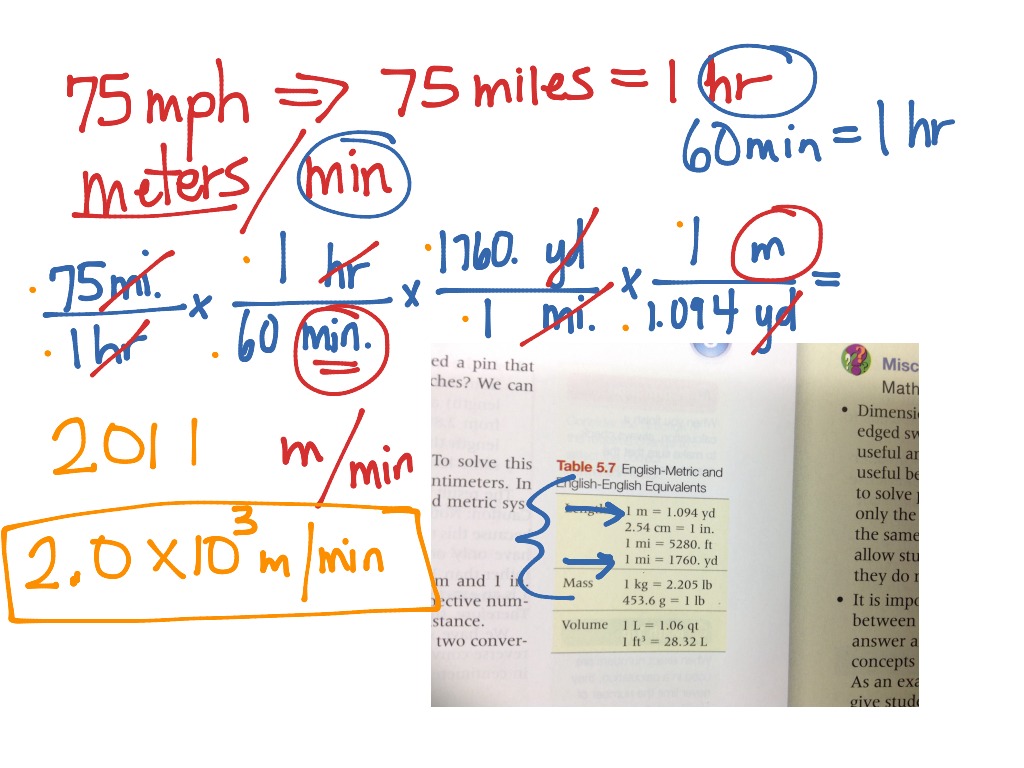 75mph ⇒ 75miles = 1 hr
60min = 1 hr
meters / min
75mi. / 1hr × 1 hr / 60 min. × 1760. yd / 1 mi. × 1 m / 1.094 yd =
2011 m/min
2.0 × 10³ m/min
ed a pin that
ches? We can
To solve this
ntimeters. In
d metric sys
m and 1 in.
ective num-
stance.
two conver-
Table 5.7 English-Metric and
English-English Equivalents
Length 1 m = 1.094 yd
2.54 cm = 1 in.
1 mi = 5280. ft
1 mi = 1760. yd
Mass 1 kg = 2.205 lb
453.6 g = 1 lb
Volume 1 L = 1.06 qt
1 ft³ = 28.32 L
Misc
Math
• Dimensi
edged sw
useful an
useful be
to solve
only the
the same
allow stu
they do
• It is impo
between
answer a
concepts
As an exa
give stude